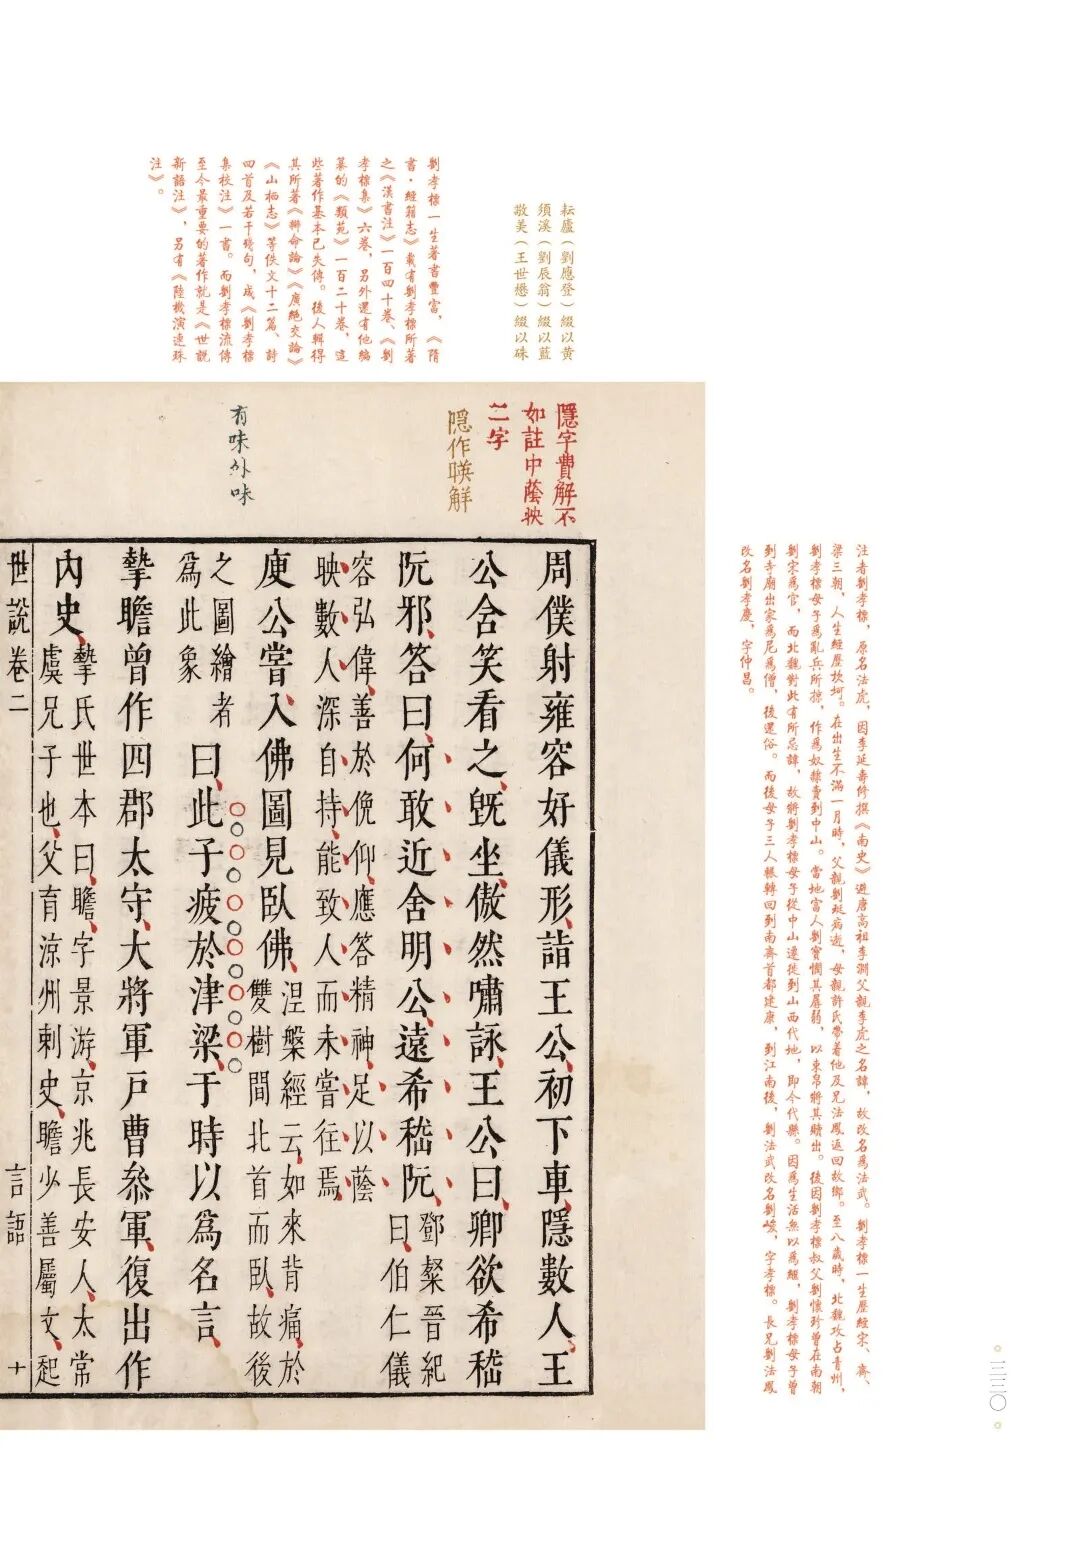 耘廬（劉應登）綴以黃
須溪（劉辰翁）綴以藍
敬美（王世懋）綴以硃
劉孝標一生著書豐富，《隋
書·經籍志》載有劉孝標所著
之《漢書注》一百四十卷、《劉
孝標集》六卷，另外還有他編
纂的《類苑》一百二十卷，這
些著作基本已失傳。後人輯得
其所著《辯命論》《廣絕交論》
《山栖志》等佚文十二篇、詩
四首及若干殘句，成《劉孝標
集校注》一書。而劉孝標流傳
至今最重要的著作就是《世說
新語注》，另有《陸機演連珠
注》。
注者劉孝標，原名法虎，因李延壽修撰《南史》避唐高祖李淵父親李虎之名諱，故改名為法武。劉孝標一生歷經宋、齊、
梁三朝，人生經歷坎坷。在出生不滿一月時，父親劉珽病逝，母親許氏帶着他及兄法鳳返回故鄉。至八歲時，北魏攻占青州，
劉孝標母子為亂兵所掠，作為奴隸賣到中山。當地富人劉寶憫其孱弱，以束帛將其贖出。後因劉孝標叔父劉懷珍曾在南朝
劉宋為官，而北魏對此有所忌諱，故將劉孝標母子從中山遷徙到山西代地，即今代縣。因為生活無以為繼，劉孝標母子曾
到寺廟出家為尼為僧，後還俗。而後母子三人輾轉回到南齊首都建康，到江南後，劉法武改名劉峻，字孝標。長兄劉法鳳
改名劉孝慶，字仲昌。
隱字費解不
如註中蔭映
二字
隱作暎解
有味外味
周僕射雍容好儀形、詣王公、初下車、隱數人、王
公含笑看之、旣坐、傲然嘯詠、王公曰、卿欲希嵇
阮邪、答曰、何敢近舍明公、遠希嵇阮、鄧粲晉紀
曰、伯仁儀
容弘偉、善於俛仰、應答精神、足以蔭
映數人、深自持、能致人、而未嘗往焉、
庾公嘗入佛圖、見臥佛、涅槃經云、如來背痛、於
雙樹間北首而臥、故後
之圖繪者
為此象
曰、此子疲於津梁、于時以爲名言、
摯瞻曾作四郡太守、大將軍戶曹叅軍、復出作
內史、摯氏世本曰、瞻、字景游、京兆長安人、太常
虞兄子也、父育涼州刺史、瞻少善屬文、起
世說卷二
言語
十
三三〇